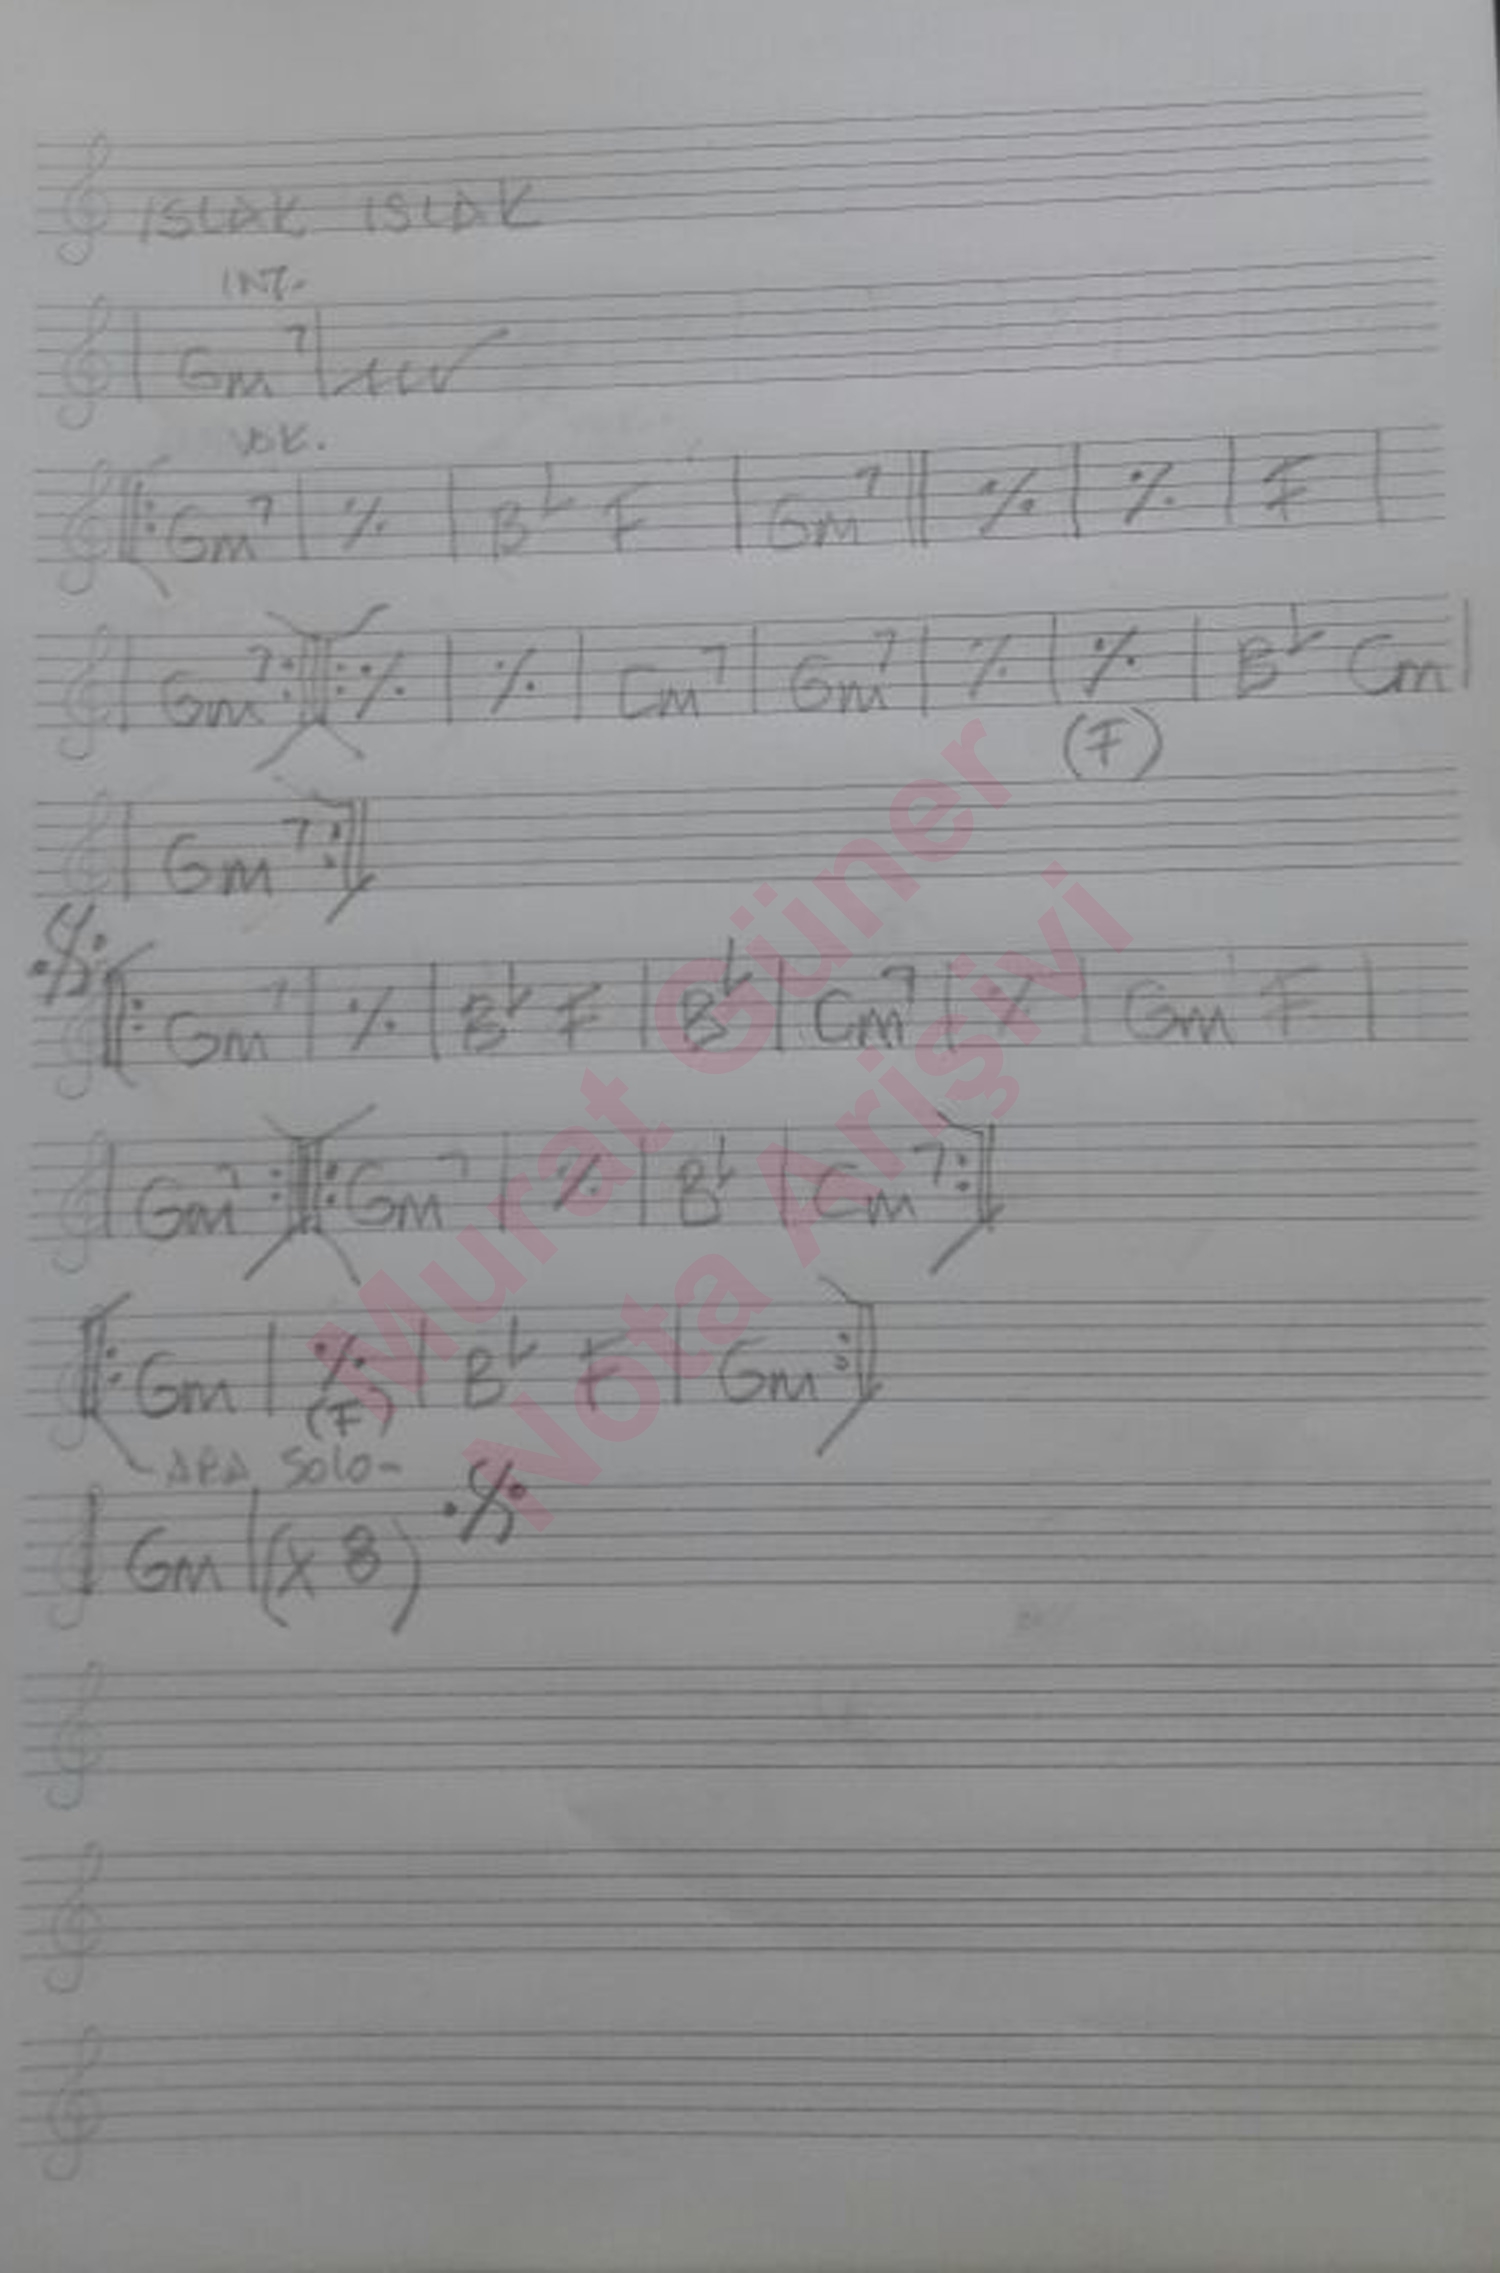 ISLAK ISLAK
INT.
| Gm7 |
VOK.
|: Gm7 | ٪ | B♭ F | Gm7 || ٪ | ٪ | F |
| Gm7 :|: ٪ | ٪ | Cm7 | Gm7 | ٪ | ٪ | B♭ Cm |
(F)
| Gm7 :|
𝄋 |: Gm7 | ٪ | B♭ F | B♭ | Cm7 | ٪ | Gm F |
| Gm7 :|: Gm7 | ٪ | B♭ | Cm7 :|
|: Gm | ٪ | B♭ F | Gm :|
(F)
- ARA SOLO -
| Gm | (x 8) 𝄋
Murat Güner
Nota Arişivi